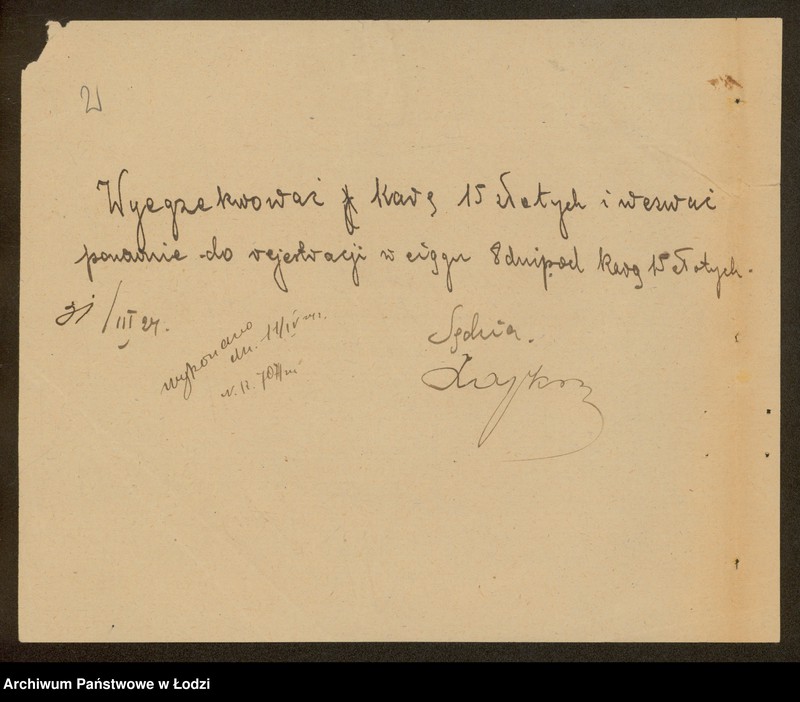 21
Wyegzekwować karę 15 złotych i wezwać
ponownie do rejestracji w ciągu 8 dni pod karą 15 złotych.
31/III 27.
wykonano
dn. 11/IV
Sędzia.
Archiwum Państwowe w Łodzi